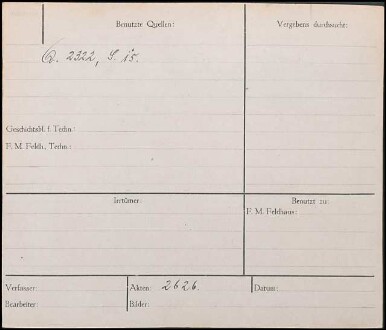 Benutzte Quellen:
Vergebens durchsucht:
Q. 2322, S. 15.
Geschichtsbl. f. Techn.:
F. M. Feldh., Techn.:
Irrtümer:
Benutzt zu:
F. M. Feldhaus:
Verfasser:
Akten: 2626.
Datum:
Bearbeiter:
Bilder: